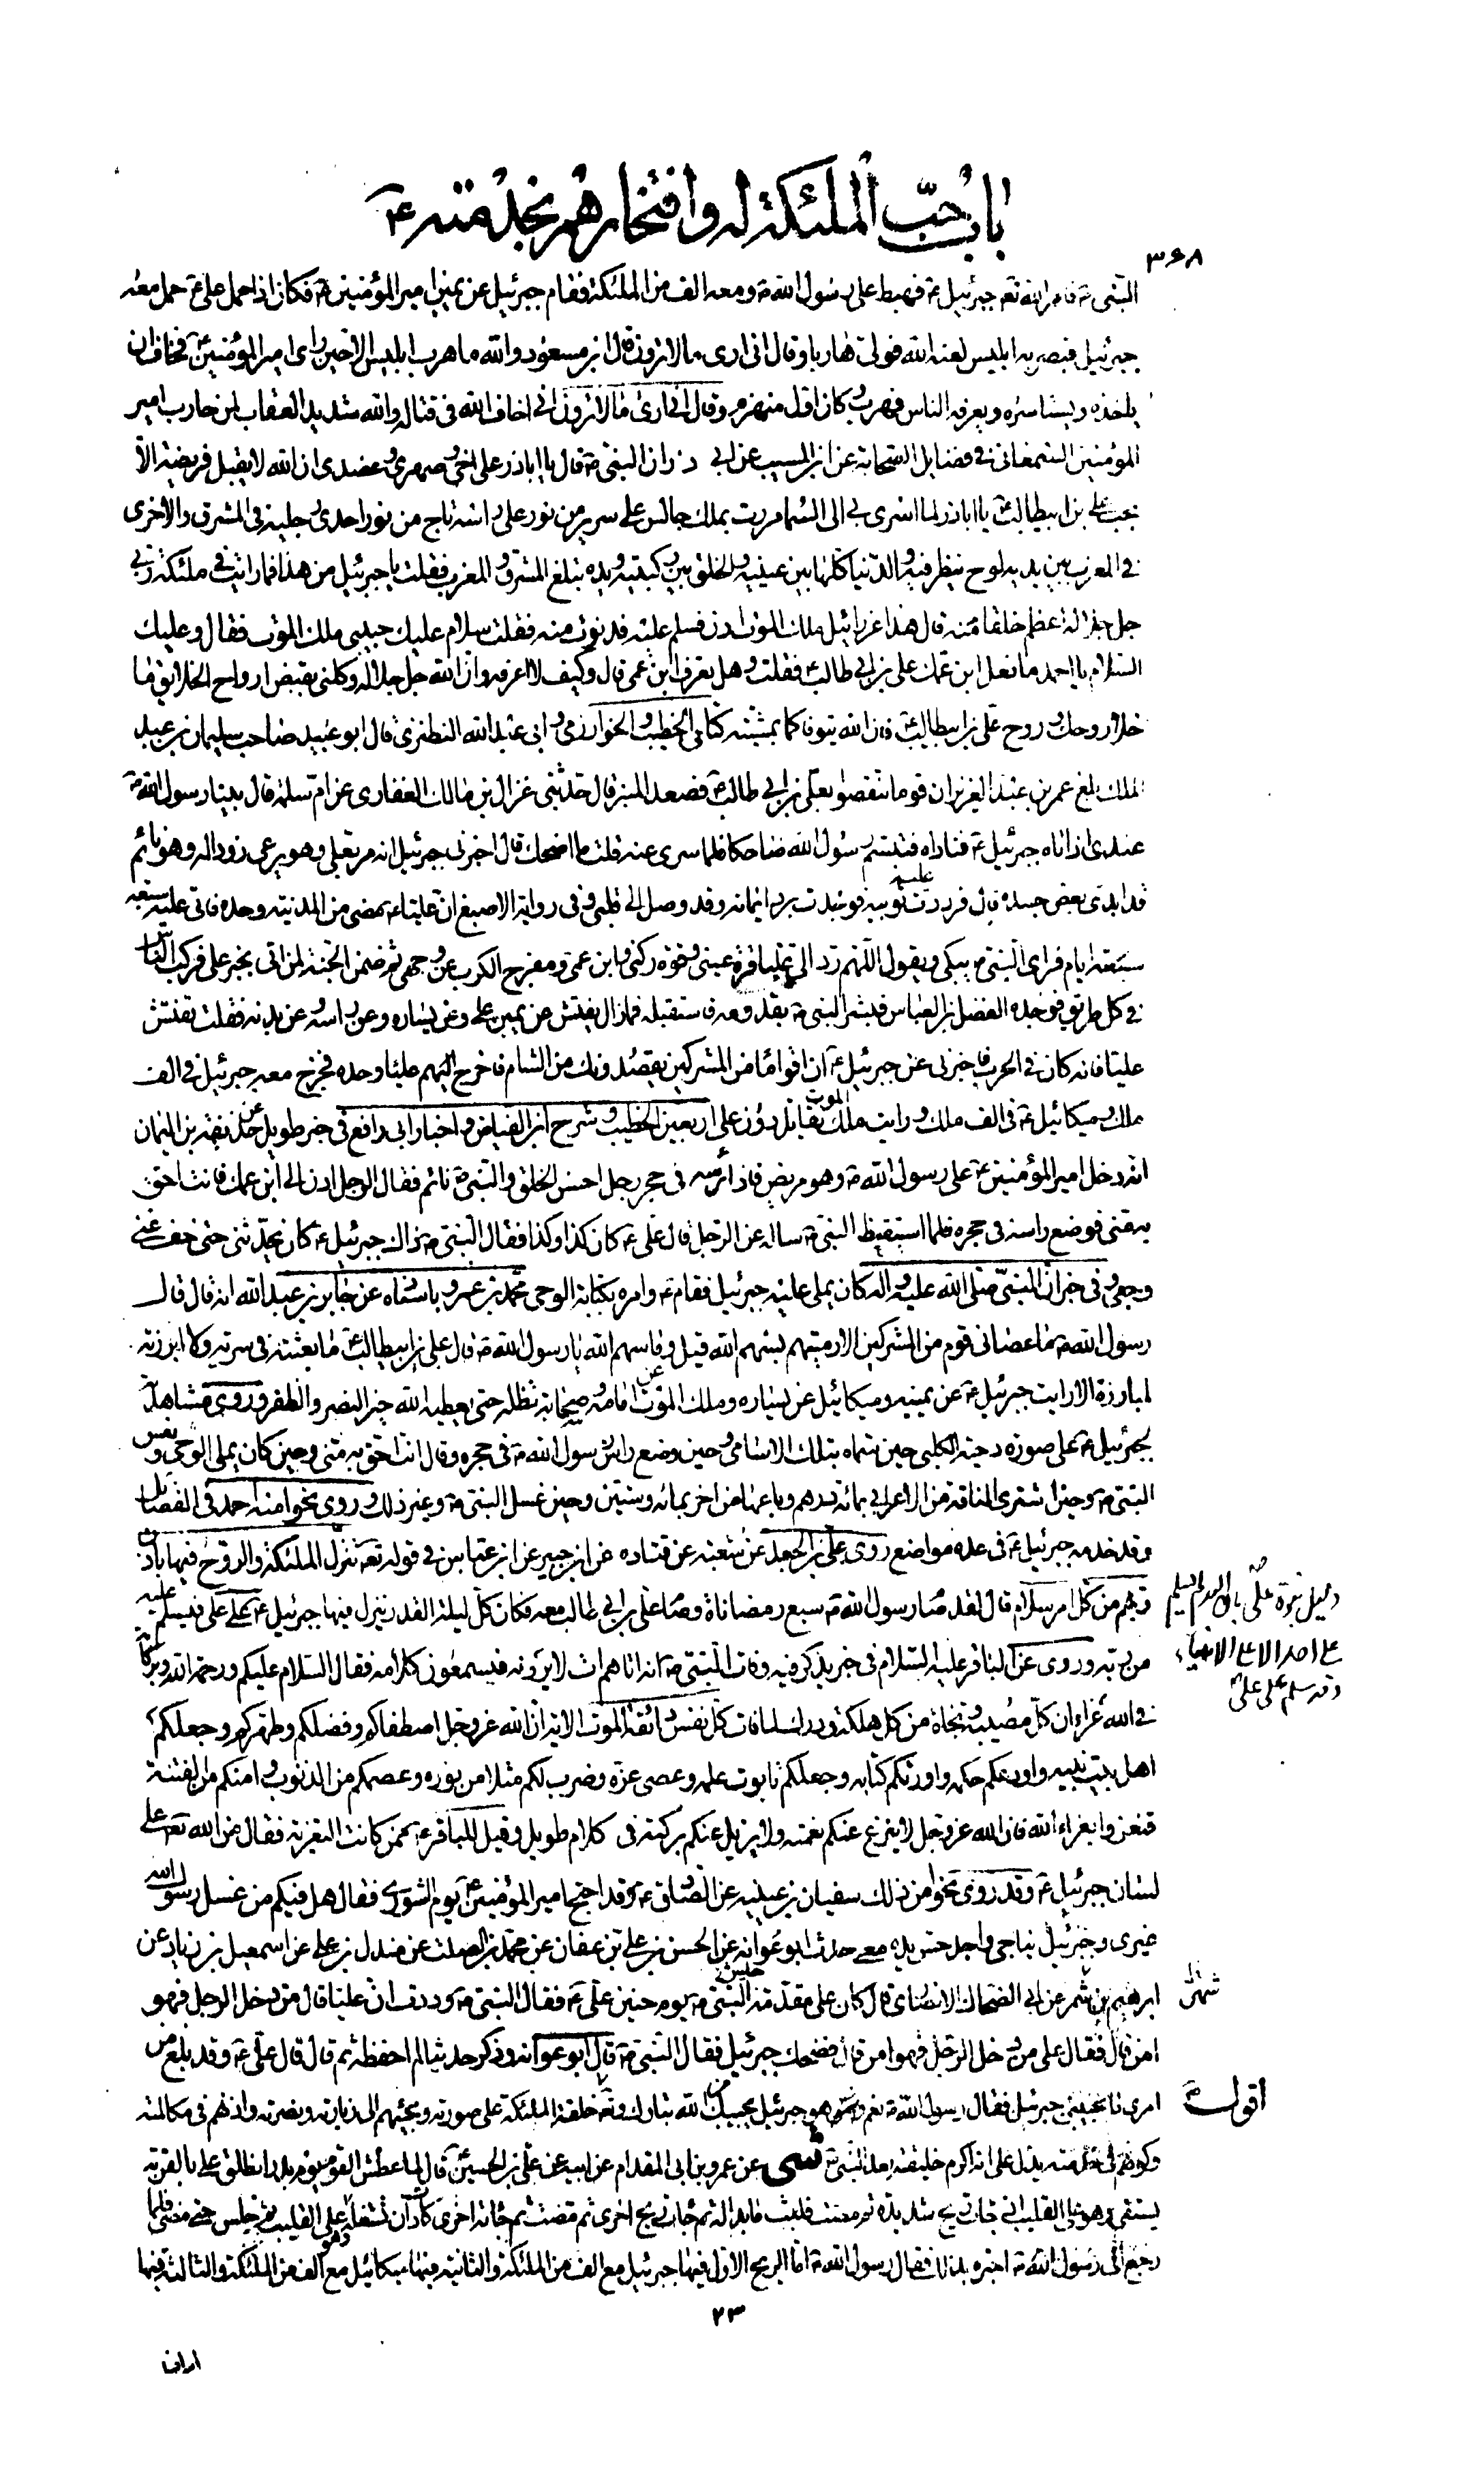 باب حبّ الملئكة له وافتخارهم بخدمته ع
٣٦٨
النبى ص فامر الله تع جبرئيل ع فهبط على رسول الله ص ومعه الف من الملئكة فقام جبرئيل عن يمين امير المؤمنين ع فكان اذا حمل على ع حمل معه
جبرئيل فبصر به ابليس لعنه الله فولى هاربا وقال انى ارى ما لا ترون قال ابن مسعود والله ما هرب ابليس الا حين راى امير المؤمنين ع فخاف ان
ياخذه ويستاسره ويعرفه الناس فهرب وكان اول منهزم وقال انى ارى ما لا ترون انى اخاف الله فى قتاله والله شديد العقاب لمن حارب امير
المؤمنين السمعانى فى فضايل الصحابة عن ابن المسيب عن ابى ذر ان النبى ص قال يا اباذر على اخى وصهرى وعضدى ان الله لا يقبل فريضة الا
بحب على بن ابيطالب ع يا اباذر لما اسرى بى الى السماء مررت بملك جالس على سرير من نور على راسه تاج من نور احدى رجليه فى المشرق والاخرى
فى المغرب بين يديه لوح ينظر فيه والدنيا كلها بين عينيه والخلق بين ركبتيه ويده تبلغ المشرق والمغرب فقلت يا جبرئيل من هذا فما رايت فى ملئكة ربى
جل جلاله اعظم خلقا منه قال هذا عزرائيل ملك الموت ادن فسلم عليه فدنوت منه فقلت سلام عليك حبيبى ملك الموت فقال وعليك
السلام يا احمد ما فعل ابن عمك على بن ابى طالب ع فقلت وهل تعرف ابن عمى قال وكيف لا اعرفه وان الله جل جلاله وكلنى بقبض ارواح الخلايق ما
خلا روحك وروح على بن ابيطالب ع فان الله يتوفاكما بمشيته كتابى الخطيب والخوارزمى وابى عبد الله النطنزى قال ابو عبيد صاحب سليمان بن عبد
الملك بلغ عمر بن عبد العزيز ان قوما تنقصوا بعلى بن ابى طالب ع فصعد المنبر قال حدثنى غزال بن مالك الغفارى عن ام سلمة قال بينا رسول الله ص
عندى اذ اتاه جبرئيل ع فناداه فتبسم رسول الله ضاحكا فلما سرى عنه قلت ما اضحك قال اخبرنى جبرئيل انه مر بعلى وهو يرعى ذودا له وهو نائم
قد ابدى بعض جسده قال فرددت عليه ثوبه فوجدت برد ايمانه وقد وصل الى قلبى وفى رواية الاصبغ ان عليا ع مضى من المدينة وحده فاتى عليه سبعة
سبعة ايام فراى النبى ص يبكى ويقول اللهم رد الى عليا قرة عينى وقوة ركنى وابن عمى ومفرج الكرب عن وجهى ثم ضمن الجنة لمن اتى بخبر على فركب الناس
فى كل طريق فوجده الفضل بن العباس فبشر النبى ص بقدومه فاستقبله فما زال يفتش عن يمين على وعن يساره وعن راسه وعن بدنه فقلت تفتش
عليا فانه كان فى الحرب فاخبرنى عن جبرئيل ع ان اقواما من المشركين يقصدونك من الشام فاخرج اليهم عليا وحده فخرج معه جبرئيل فى الف
ملك وميكائيل ع فى الف ملك ورايت ملك الموت يقاتل دون على اربعين الخطيب وشرح ابن الفياض واخبار ابى رافع فى خبر طويل عن حذيفة بن اليمان
انه دخل امير المؤمنين ع على رسول الله ص وهو مريض فاذا راسه فى حجر رجل احسن الخلق والنبى ص نائم فقال الرجل ادن الى ابن عمك فانت احق
به منى فوضع راسه فى حجره فلما استيقظ النبى ص ساله عن الرجل قال على ع كان كذا وكذا فقال النبى ص ذاك جبرئيل ع كان يحدثنى حتى خف عنى
وجعى وفى خبر ان النبى صلى الله عليه واله كان يملى عليه جبرئيل فقام ع وامره بكتابة الوحى محمد بن عمرو باسناده عن جابر بن عبد الله انه قال قال
رسول الله ص ما عصانى قوم من المشركين الا رميتهم بسهم الله قيل وما سهم الله يا رسول الله ص قال على بن ابيطالب ع ما بعثته فى سرية ولا ابرزته
لمبارزة الا رايت جبرئيل ع عن يمينه وميكائيل عن يساره وملك الموت امامه وسحابة تظله حتى يعطيه الله خير النصر والظفر وروى مشاهدته
لجبرئيل ع على صورة دحية الكلبى حين سماه بتلك الاسامى وحين وضع راس رسول الله ص فى حجره وقال انت احق به منى وحين كان يملى الوحى ونعس
النبى ص وحين اشترى الناقة من الاعرابى بمائة درهم وباعها من اخر بمائة وستين وحين غسل النبى ص وغير ذلك وروى نحوا منه احمد فى الفضائل
وقد خدمه جبرئيل ع فى عدة مواضع روى على بن الجعد عن شعبة عن قتادة عن ابن جبير عن ابن عباس فى قوله تع تنزل الملئكة والروح فيها باذن
ربهم من كل امر سلام قال لقد صام رسول الله ص سبع رمضانات وصام على بن ابى طالب معه فكان كل ليلة القدر ينزل فيها جبرئيل ع على على فيسلم عليه
من ربه وروى عن الباقر عليه السلام فى خبر يذكر فيه وفات النبى ص انه اتاهم ات لا يرونه فيسمعون كلامه فقال السلام عليكم ورحمة الله وبركاته
فى الله عزاء من كل مصيبة ونجاة من كل هلكة ودرك لما فات كل نفس ذائقة الموت الاية ان الله عز وجل اصطفاكم وفضلكم وطهركم وجعلكم
اهل بيت نبيه واودعكم حكمه واورثكم كتابه وجعلكم تابوت علمه وعصى عزه وضرب لكم مثلا من نوره وعصمكم من الذنوب وامنكم من الفتنة
فتعزوا بعزاء الله فان الله عز وجل لا ينزع عنكم نعمته ولا يزيل عنكم بركته فى كلام طويل وقيل للباقر ع ممن كانت التعزية فقال من الله تع على
لسان جبرئيل ع وقد روى نحوا من ذلك سفيان بن عيينه عن الصادق ع وقد احتج امير المؤمنين ع يوم الشورى فقال هل فيكم من غسل رسول الله
غيرى وجبرئيل يناجى واجد حس يده معى حدث ابو عوانة عن الحسن بن على بن عفان عن محمد بن الصلت عن مندل بن على عن اسمعيل بن زياد عن
ابرهيم بن شمر عن ابى الضحاك الانصارى قال كان على مقدمة النبى ص يوم حنين على ع فقال النبى ص ان عليا قال من دخل الرحل فهو
امن قال فقال على من دخل الرحل فهو امن قال فضحك جبرئيل فقال النبى ص قال ابو عوانة وذكر حديثا لم احفظه ثم قال قال على ع وقد بلغ من
امرى ما يجيبنى جبرئيل فقال رسول الله ص نعم وهو جبرئيل يجيبك من الله تبارك وتع خلقة الملئكة على صورته ومجيئهم الى زيارته ونصرته واذنهم فى مكالمته
وكونهم فى خدمته يدل على انه اكرم خليقته بعد النبى ص شى عن عمرو بن ابى المقدام عن ابيه عن على بن الحسين ع قال لما عطش القوم يوم بدر انطلق على بالقربة
يستقى وهو على القليب اذ جاءت ريح شديدة ثم مضت فلبث ما بدا له ثم جاءت ريح اخرى ثم مضت ثم جاءته اخرى كاد ان تشغله وهو على القليب ثم جلس حتى مضى فلما
رجع الى رسول الله ص اخبره بذلك فقال رسول الله ص اما الريح الاول فيها جبرئيل مع الف من الملئكة والثانية فيها ميكائيل مع الف من الملئكة والثالثة فيها
على احد الا على الانبياء
وقد سلم على على ع
اقول
٢٣
اسرافيل